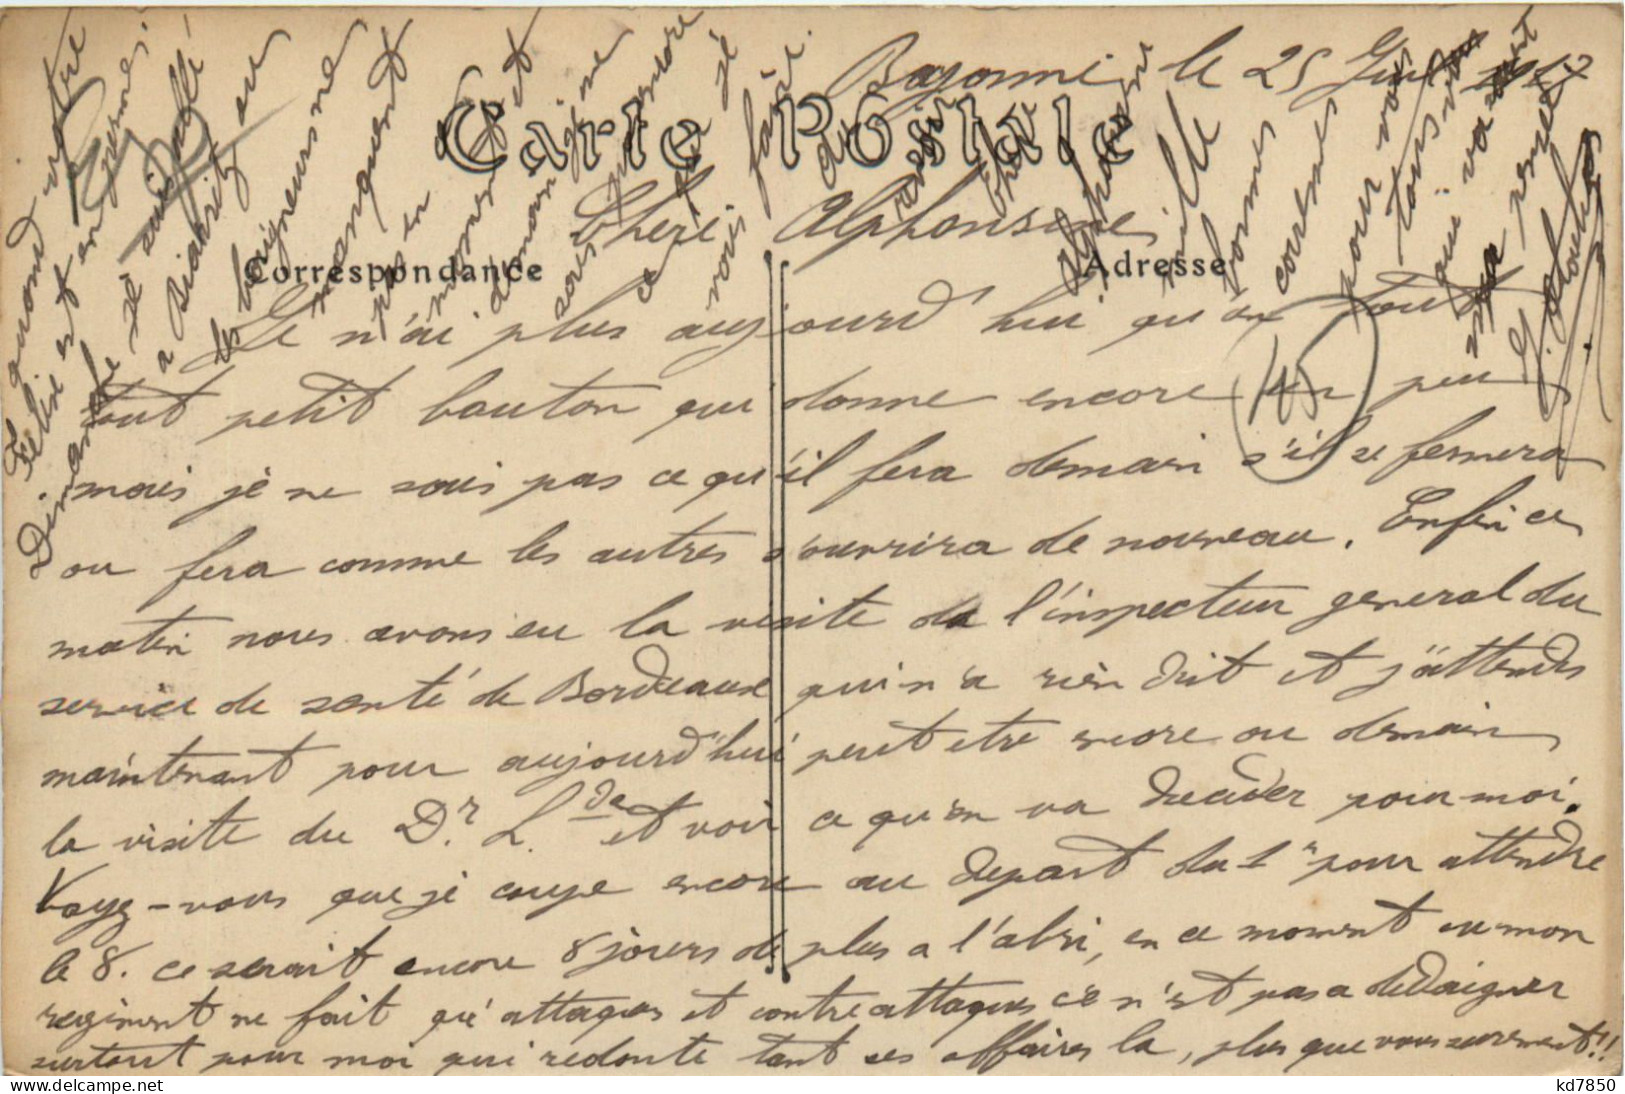 Bayonne le 25 Juin 1917
Carte Postale
Chère Alphonsine
Correspondance
Adresse
Je n'ai plus aujourd'hui qu'un tout
tout petit bouton qui donne encore un peu
mais je ne sais pas ce qu'il fera demain s'il se fermera
ou fera comme les autres s'ouvrira de nouveau. Enfin ce
matin nous avons eu la visite de l'inspecteur general du
service de santé de Bordeaux qui n'a rien dit et j'attends
maintenant pour aujourd'hui peut etre encore ou demain
la visite du Dr L. de et voir ce qu'on va decider pour moi.
Voyez-vous que je coupe encore au depart du 1er pour attendre
le 8. ce serait encore 8 jours de plus a l'abri, en ce moment ou mon
regiment ne fait qu'attaques et contre attaques ce n'est pas a dedaigner
surtout pour moi qui redoute tant ces affaires la, plus que vous surement!!
Et quand votre
Febre est en
permes.
Dimanche je suis allé
a Biarritz ou
les baigneurs ne
manquent
pas en ce
moment et
demain je ne
sais pas encore
ce que je
vais faire.
Au revoir
chère
Alphonsine
mille
bonnes
caresses
pour vous
tous vous
qui va
ma pensée
J.
15
kd7850